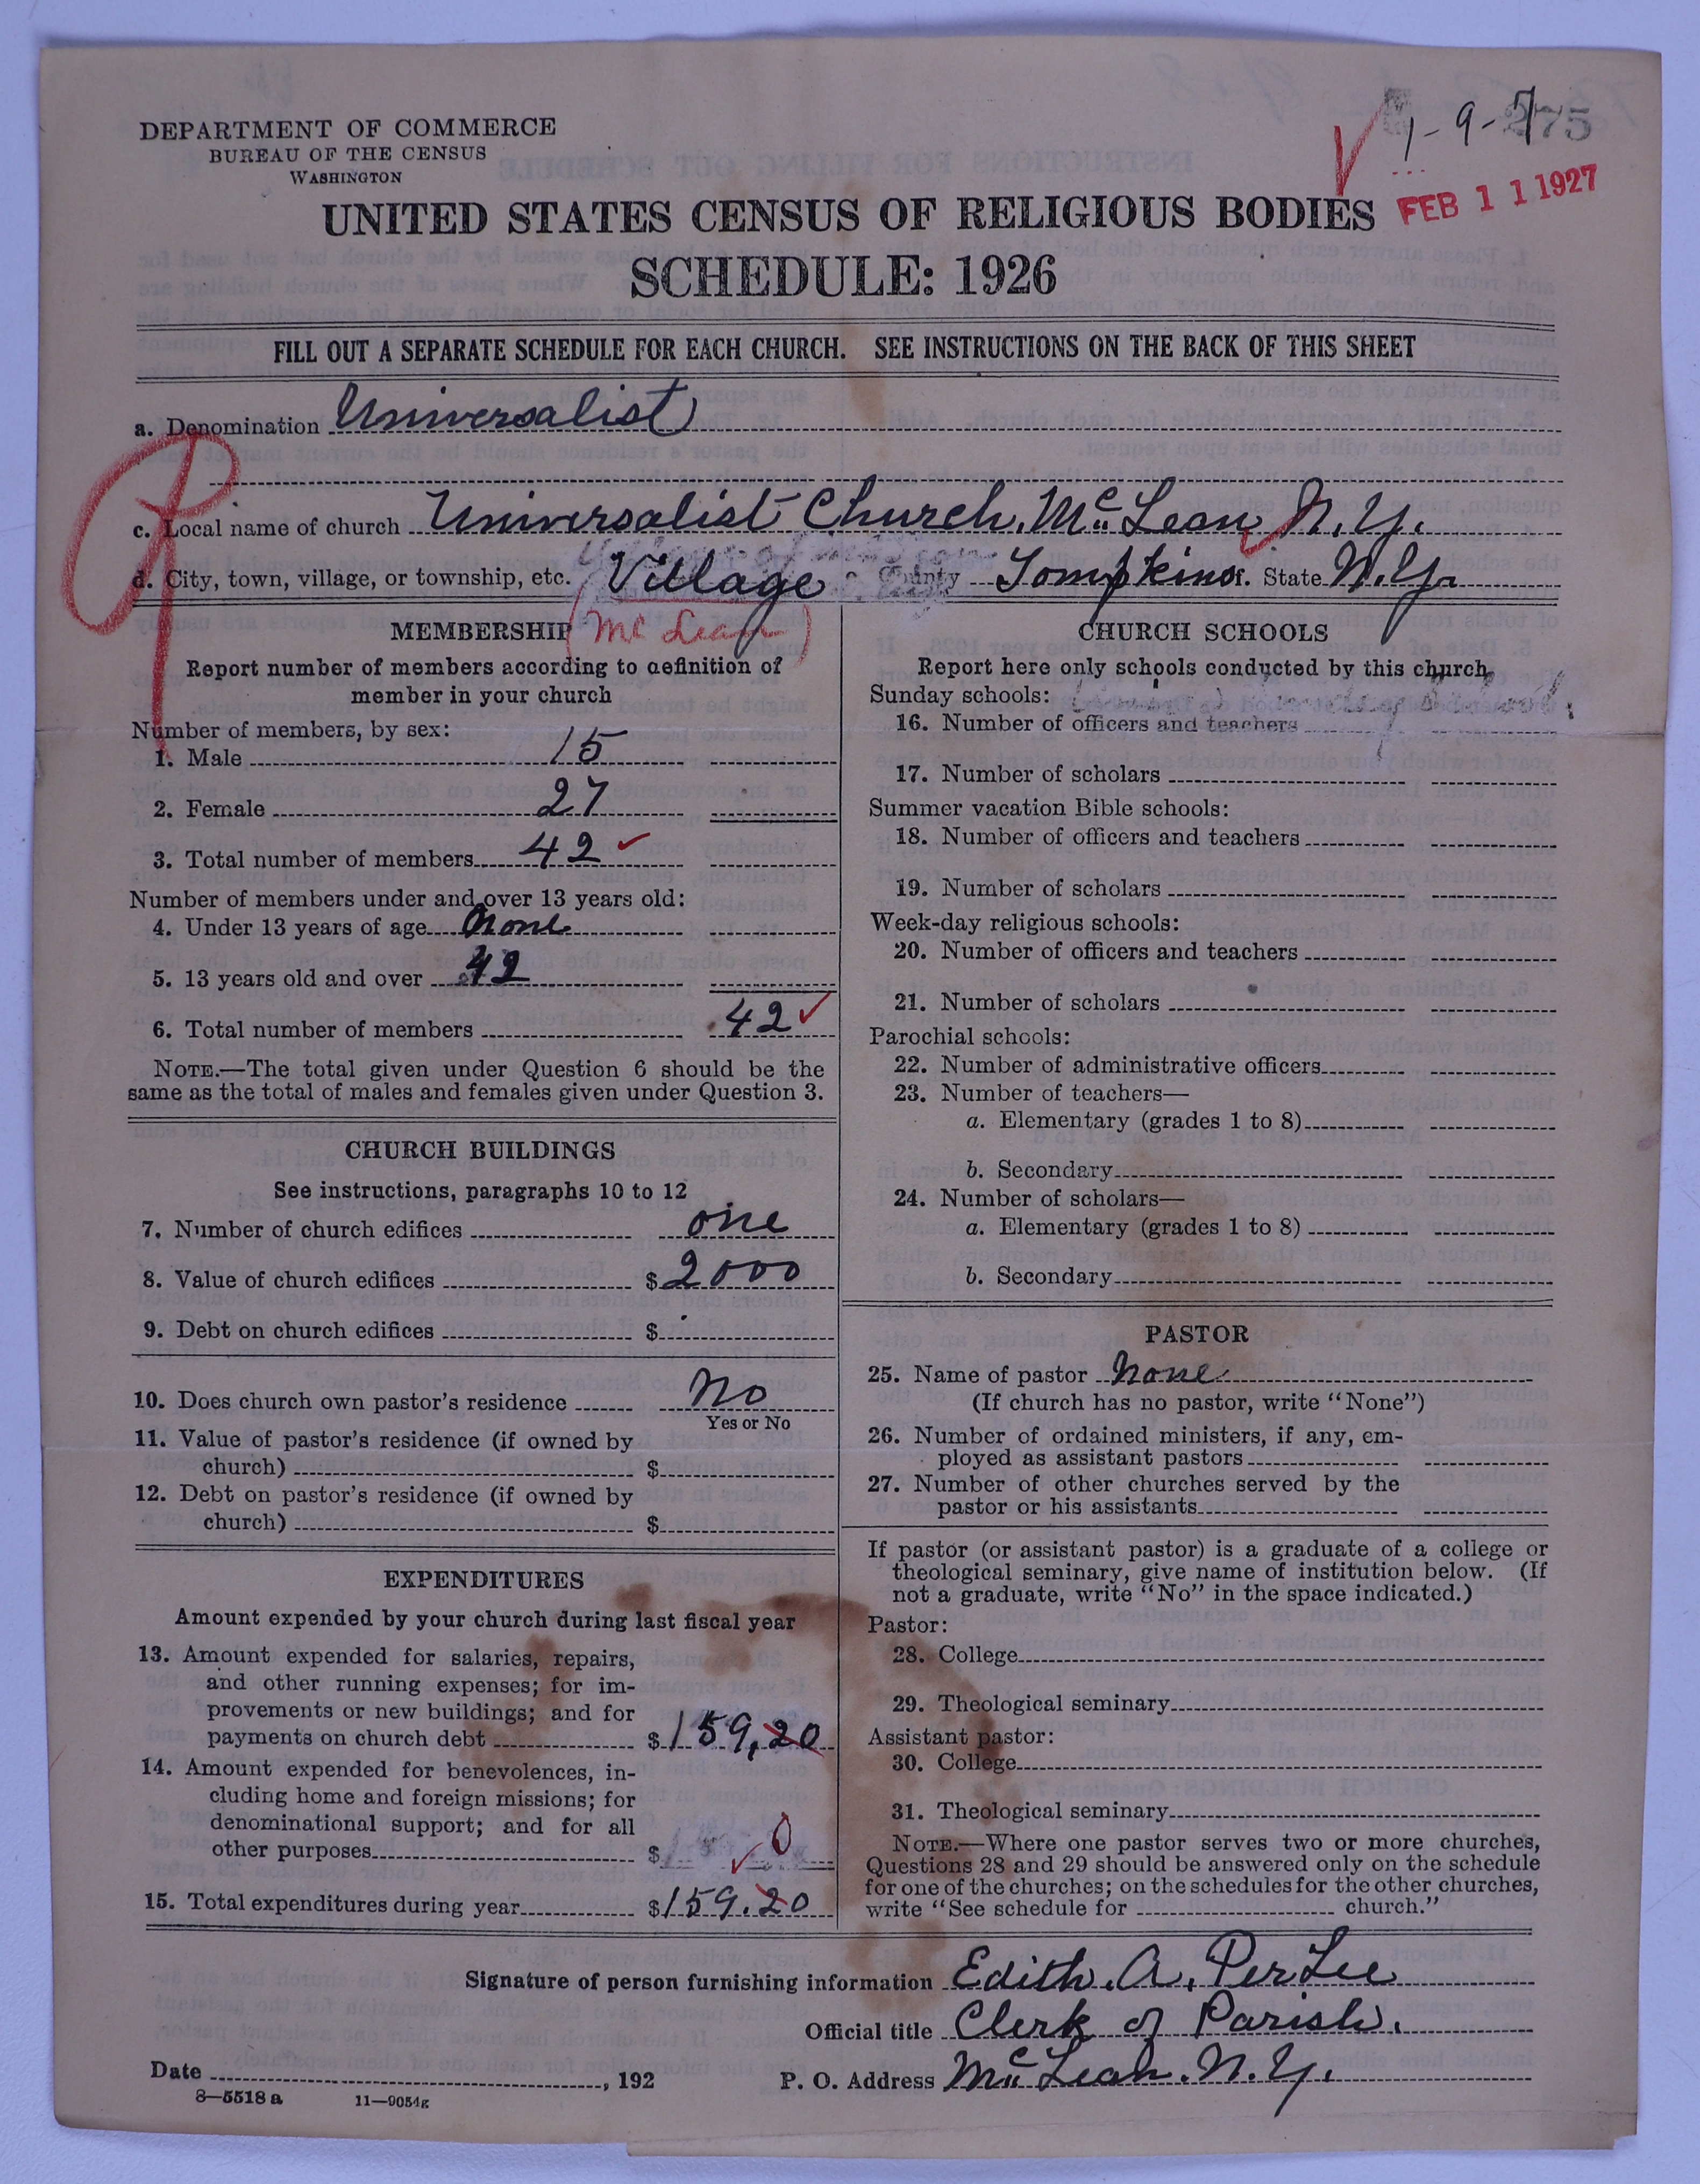 DEPARTMENT OF COMMERCE
BUREAU OF THE CENSUS
WASHINGTON
1-9-7
275
FEB 11 1927
UNITED STATES CENSUS OF RELIGIOUS BODIES
SCHEDULE: 1926
FILL OUT A SEPARATE SCHEDULE FOR EACH CHURCH. SEE INSTRUCTIONS ON THE BACK OF THIS SHEET
a. Denomination Universalist
c. Local name of church Universalist Church, Mc Lean, N.Y.
d. City, town, village, or township, etc. Village County Tompkins. State N.Y.
MEMBERSHIP (Mc Lean)
Report number of members according to definition of
member in your church
Number of members, by sex:
1. Male 15
2. Female 27
3. Total number of members 42
Number of members under and over 13 years old:
4. Under 13 years of age none
5. 13 years old and over 42
6. Total number of members 42
NOTE.—The total given under Question 6 should be the
same as the total of males and females given under Question 3.
CHURCH BUILDINGS
See instructions, paragraphs 10 to 12
7. Number of church edifices one
8. Value of church edifices $2000
9. Debt on church edifices $
10. Does church own pastor's residence No
Yes or No
11. Value of pastor's residence (if owned by
church) $
12. Debt on pastor's residence (if owned by
church) $
EXPENDITURES
Amount expended by your church during last fiscal year
13. Amount expended for salaries, repairs,
and other running expenses; for im-
provements or new buildings; and for
payments on church debt $159,20
14. Amount expended for benevolences, in-
cluding home and foreign missions; for
denominational support; and for all
other purposes $ 0
15. Total expenditures during year $159.20
CHURCH SCHOOLS
Report here only schools conducted by this church
Sunday schools:
16. Number of officers and teachers
17. Number of scholars
Summer vacation Bible schools:
18. Number of officers and teachers
19. Number of scholars
Week-day religious schools:
20. Number of officers and teachers
21. Number of scholars
Parochial schools:
22. Number of administrative officers
23. Number of teachers—
a. Elementary (grades 1 to 8)
b. Secondary
24. Number of scholars—
a. Elementary (grades 1 to 8)
b. Secondary
PASTOR
25. Name of pastor None
(If church has no pastor, write "None")
26. Number of ordained ministers, if any, em-
ployed as assistant pastors
27. Number of other churches served by the
pastor or his assistants
If pastor (or assistant pastor) is a graduate of a college or
theological seminary, give name of institution below. (If
not a graduate, write "No" in the space indicated.)
Pastor:
28. College
29. Theological seminary
Assistant pastor:
30. College
31. Theological seminary
NOTE.—Where one pastor serves two or more churches,
Questions 28 and 29 should be answered only on the schedule
for one of the churches; on the schedules for the other churches,
write "See schedule for church."
Signature of person furnishing information Edith. A. PerLee
Official title Clerk of Parish.
Date , 192
P. O. Address Mc Lean. N.Y.
8—5518 a 11—9054g